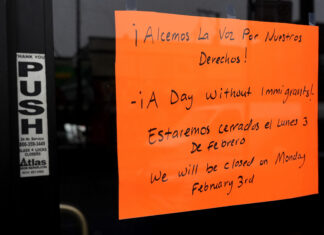 ¡Alcemos La Voz Por Nuestros
Derechos!
-¡A Day without Immigrants!
Estaremos cerrados el Lunes 3
De Febrero
We will be closed on Monday
February 3rd
THANK YOU
PUSH
24 Hr. Service
Atlas